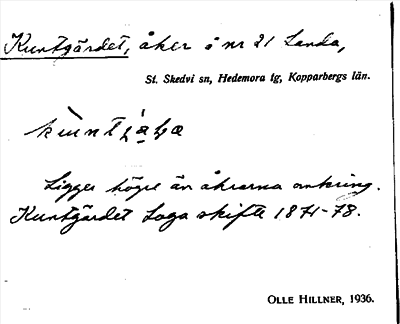 Kuntgärdet, åker å nr 21 Landa,
St. Skedvi sn, Hedemora tg, Kopparbergs län.
Ligger högre än åkrarna omkring.
Kuntgärdet Laga skifte 1871-78.
OLLE HILLNER, 1936.